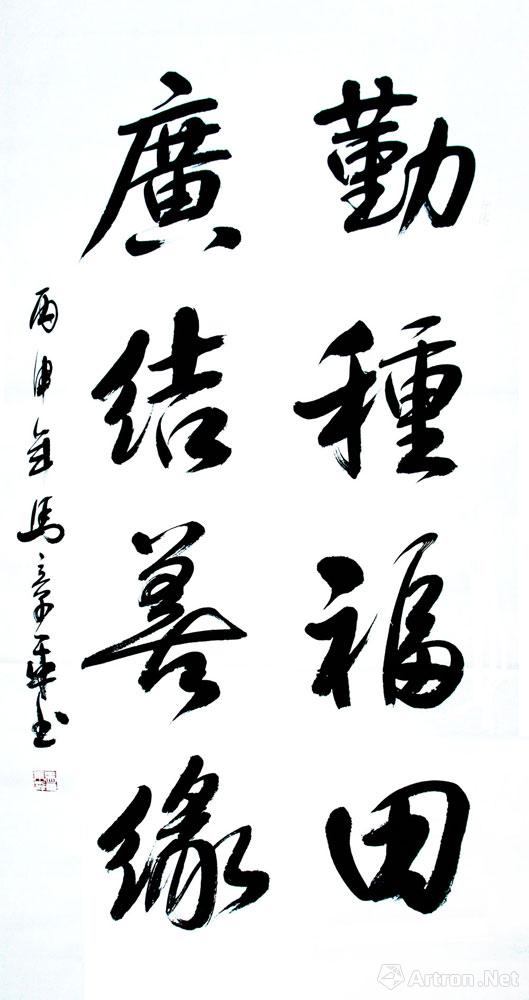 勤種福田
廣結善緣
丙申年馬章乘書
Artron.Net